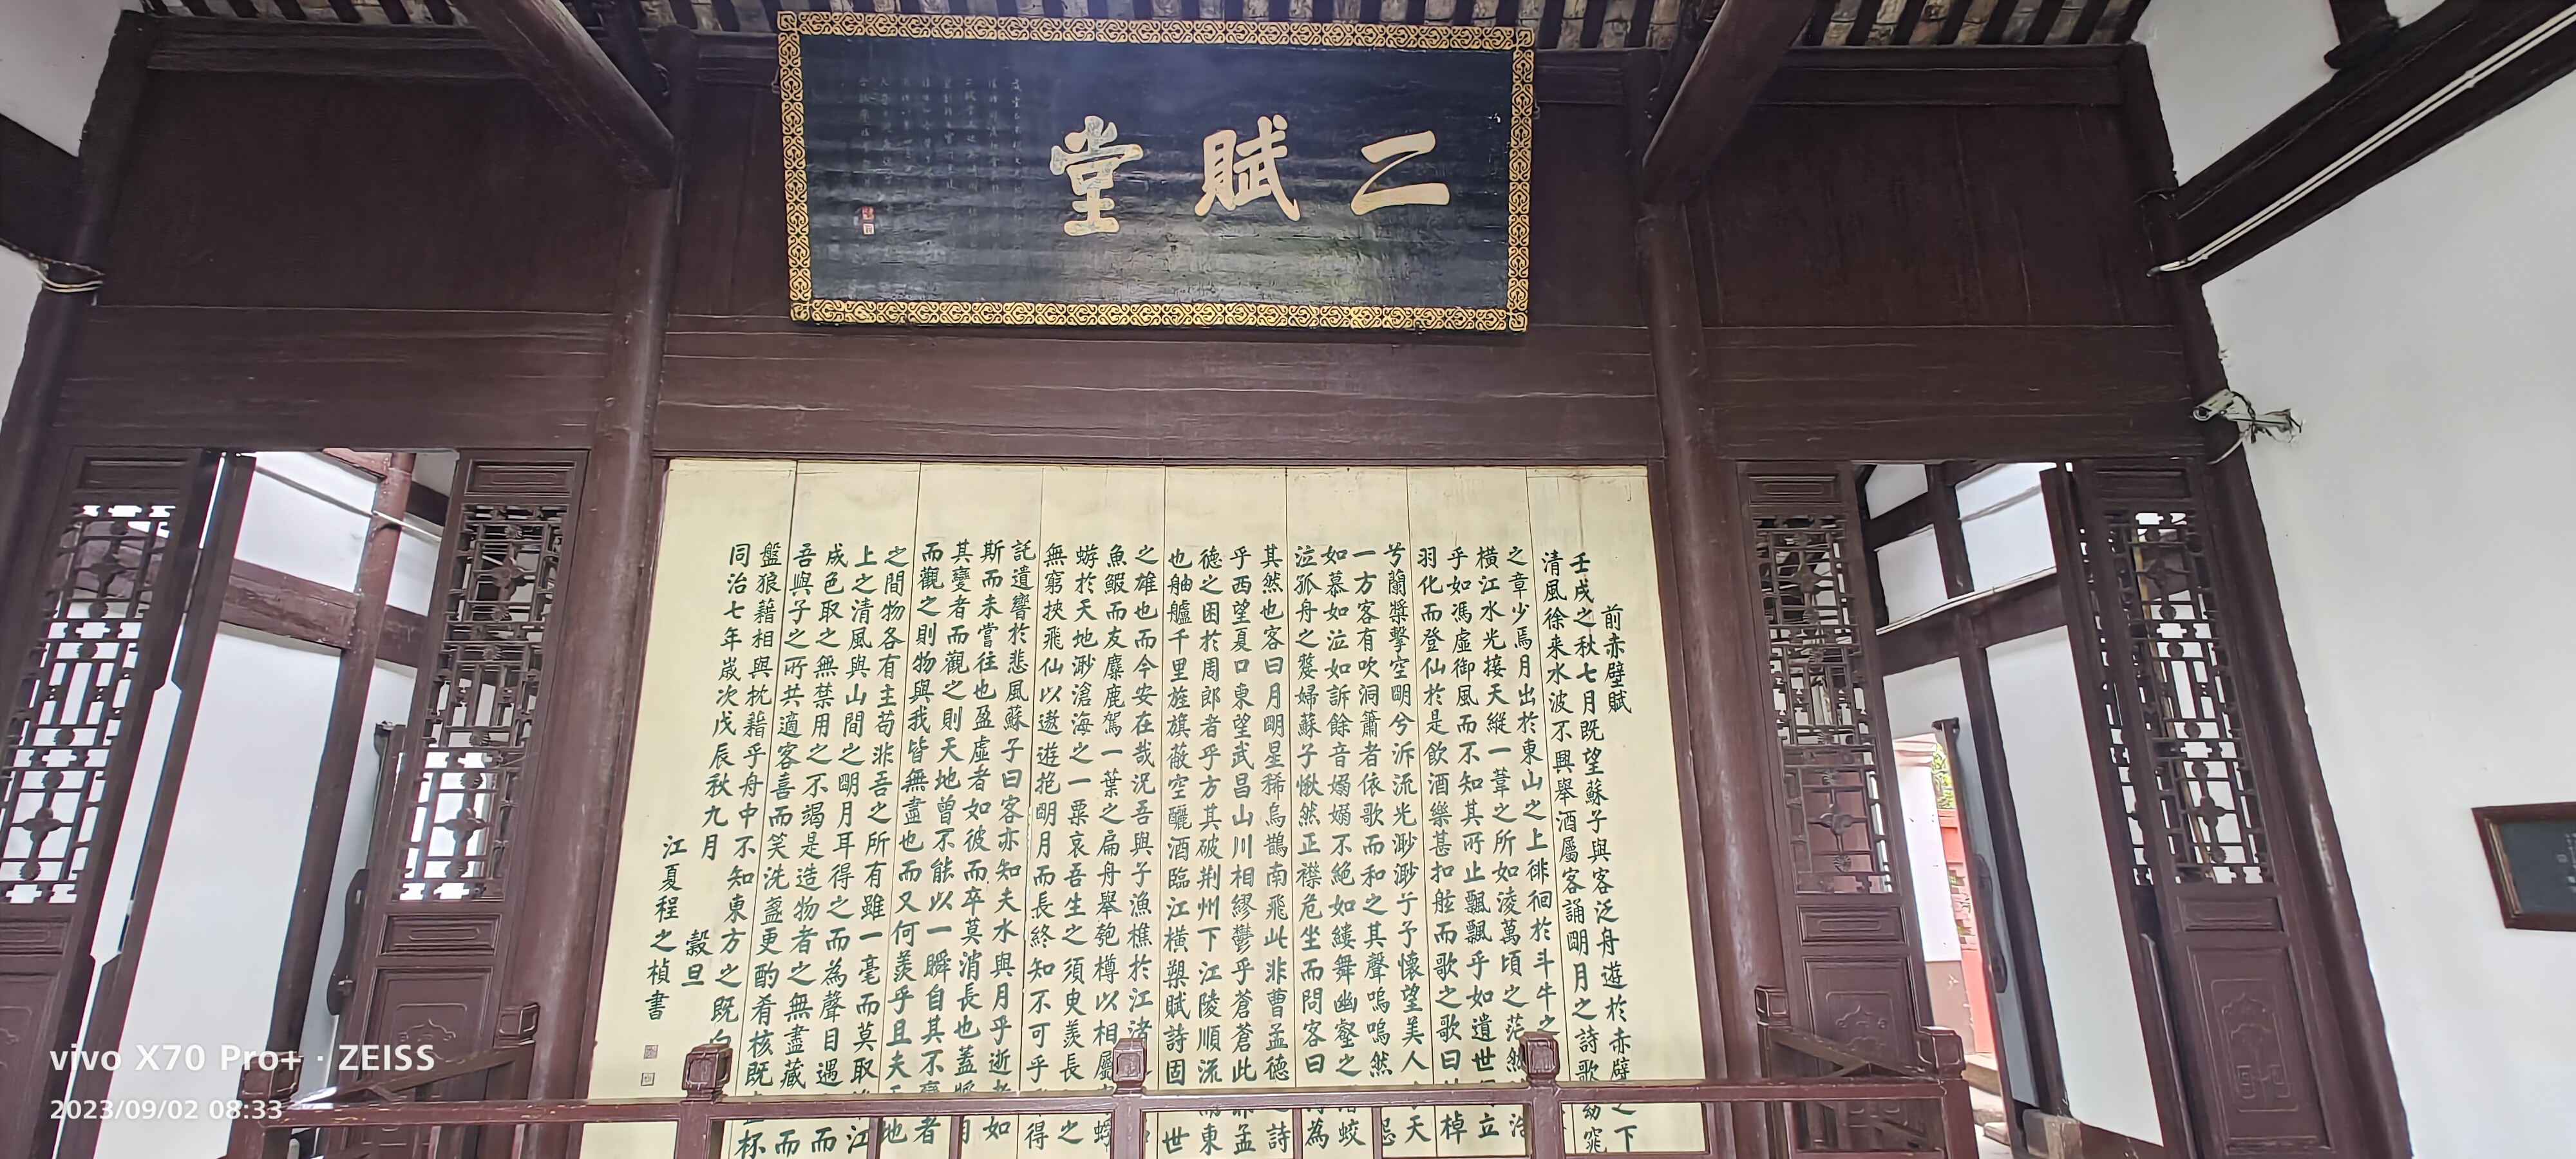 二賦堂
前赤壁賦
壬戌之秋七月既望蘇子與客泛舟遊於赤壁之下
清風徐来水波不興舉酒屬客誦明月之詩歌窈窕
之章少焉月出於東山之上徘徊於斗牛之
橫江水光接天縱一葦之所如淩萬頃之茫然浩
乎如馮虛御風而不知其所止飄飄乎如遺世立
羽化而登仙於是飲酒樂甚扣舷而歌之歌曰棹
兮蘭槳擊空明兮泝流光渺渺兮予懷望美人天
一方客有吹洞簫者依歌而和之其聲嗚嗚然
如慕如泣如訴餘音嫋嫋不絕如縷舞幽壑之蛟
泣孤舟之嫠婦蘇子愀然正襟危坐而問客曰為
其然也客曰月明星稀烏鵲南飛此非曹孟德詩
乎西望夏口東望武昌山川相繆鬱乎蒼蒼此孟
德之困於周郎者乎方其破荊州下江陵順流東
也舳艫千里旌旗蔽空釃酒臨江橫槊賦詩固世
之雄也而今安在哉況吾與子漁樵於江渚
魚鰕而友麋鹿駕一葉之扁舟舉匏樽以相屬蜉
蝣於天地渺滄海之一粟哀吾生之須臾羨長之
無窮挾飛仙以遨遊抱明月而長終知不可乎得
託遺響於悲風蘇子曰客亦知夫水與月乎逝者如
斯而未嘗往也盈虛者如彼而卒莫消長也蓋將
其變者而觀之則天地曾不能以一瞬自其不變者
而觀之則物與我皆無盡也而又何羨乎且夫地
之間物各有主苟非吾之所有雖一毫而莫取江
上之清風與山間之明月耳得之而為聲目遇而
成色取之無禁用之不竭是造物者之無盡藏而
吾與子之所共適客喜而笑洗盞更酌肴核既杯
盤狼藉相與枕藉乎舟中不知東方之既白
同治七年嵗次戊辰秋九月
穀旦
江夏程之楨書
vivo X70 Pro+ · ZEISS
2023/09/02 08:33